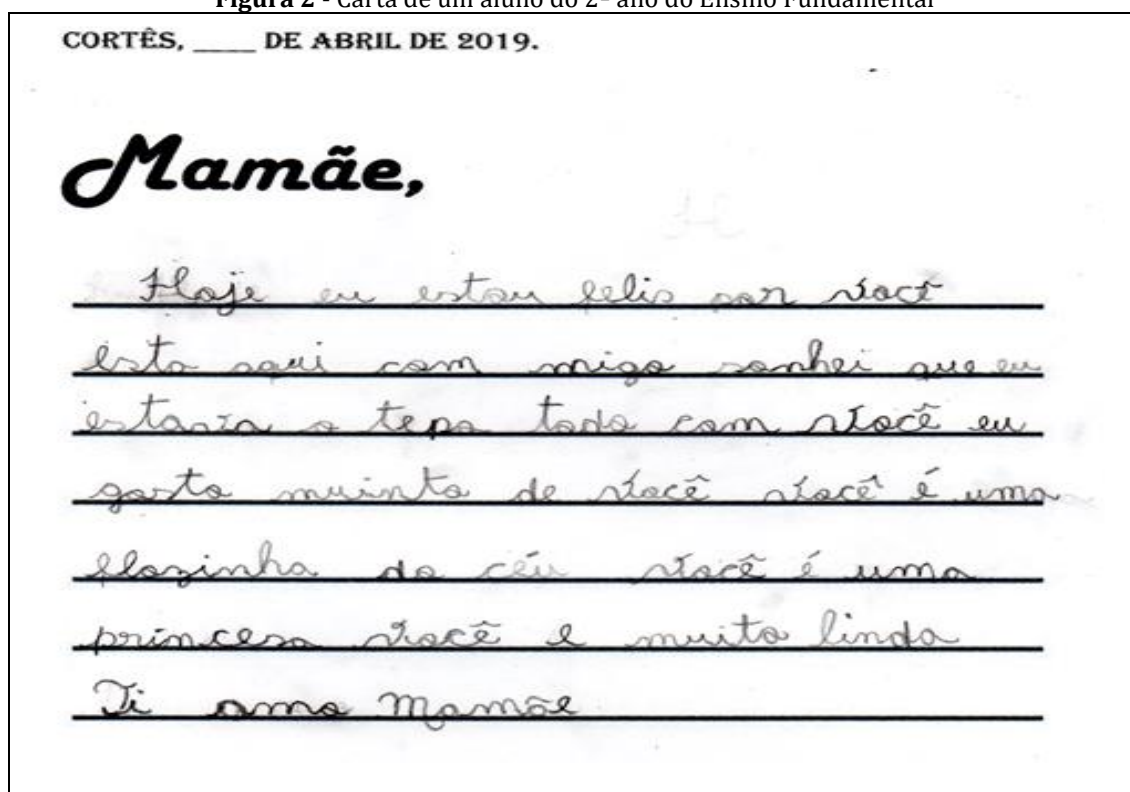 Figura 2 - Carta de um aluno do 2º ano do Ensino Fundamental
CORTÊS, ____ DE ABRIL DE 2019.
Mamãe,
Hoje eu estou felis por você
esta aqui com migo sonhei que eu
estaria o tepo todo com você eu
gosto muinto de você você é uma
flozinha do céu você é uma
princesa você e muito linda
Ti amo Mamãe